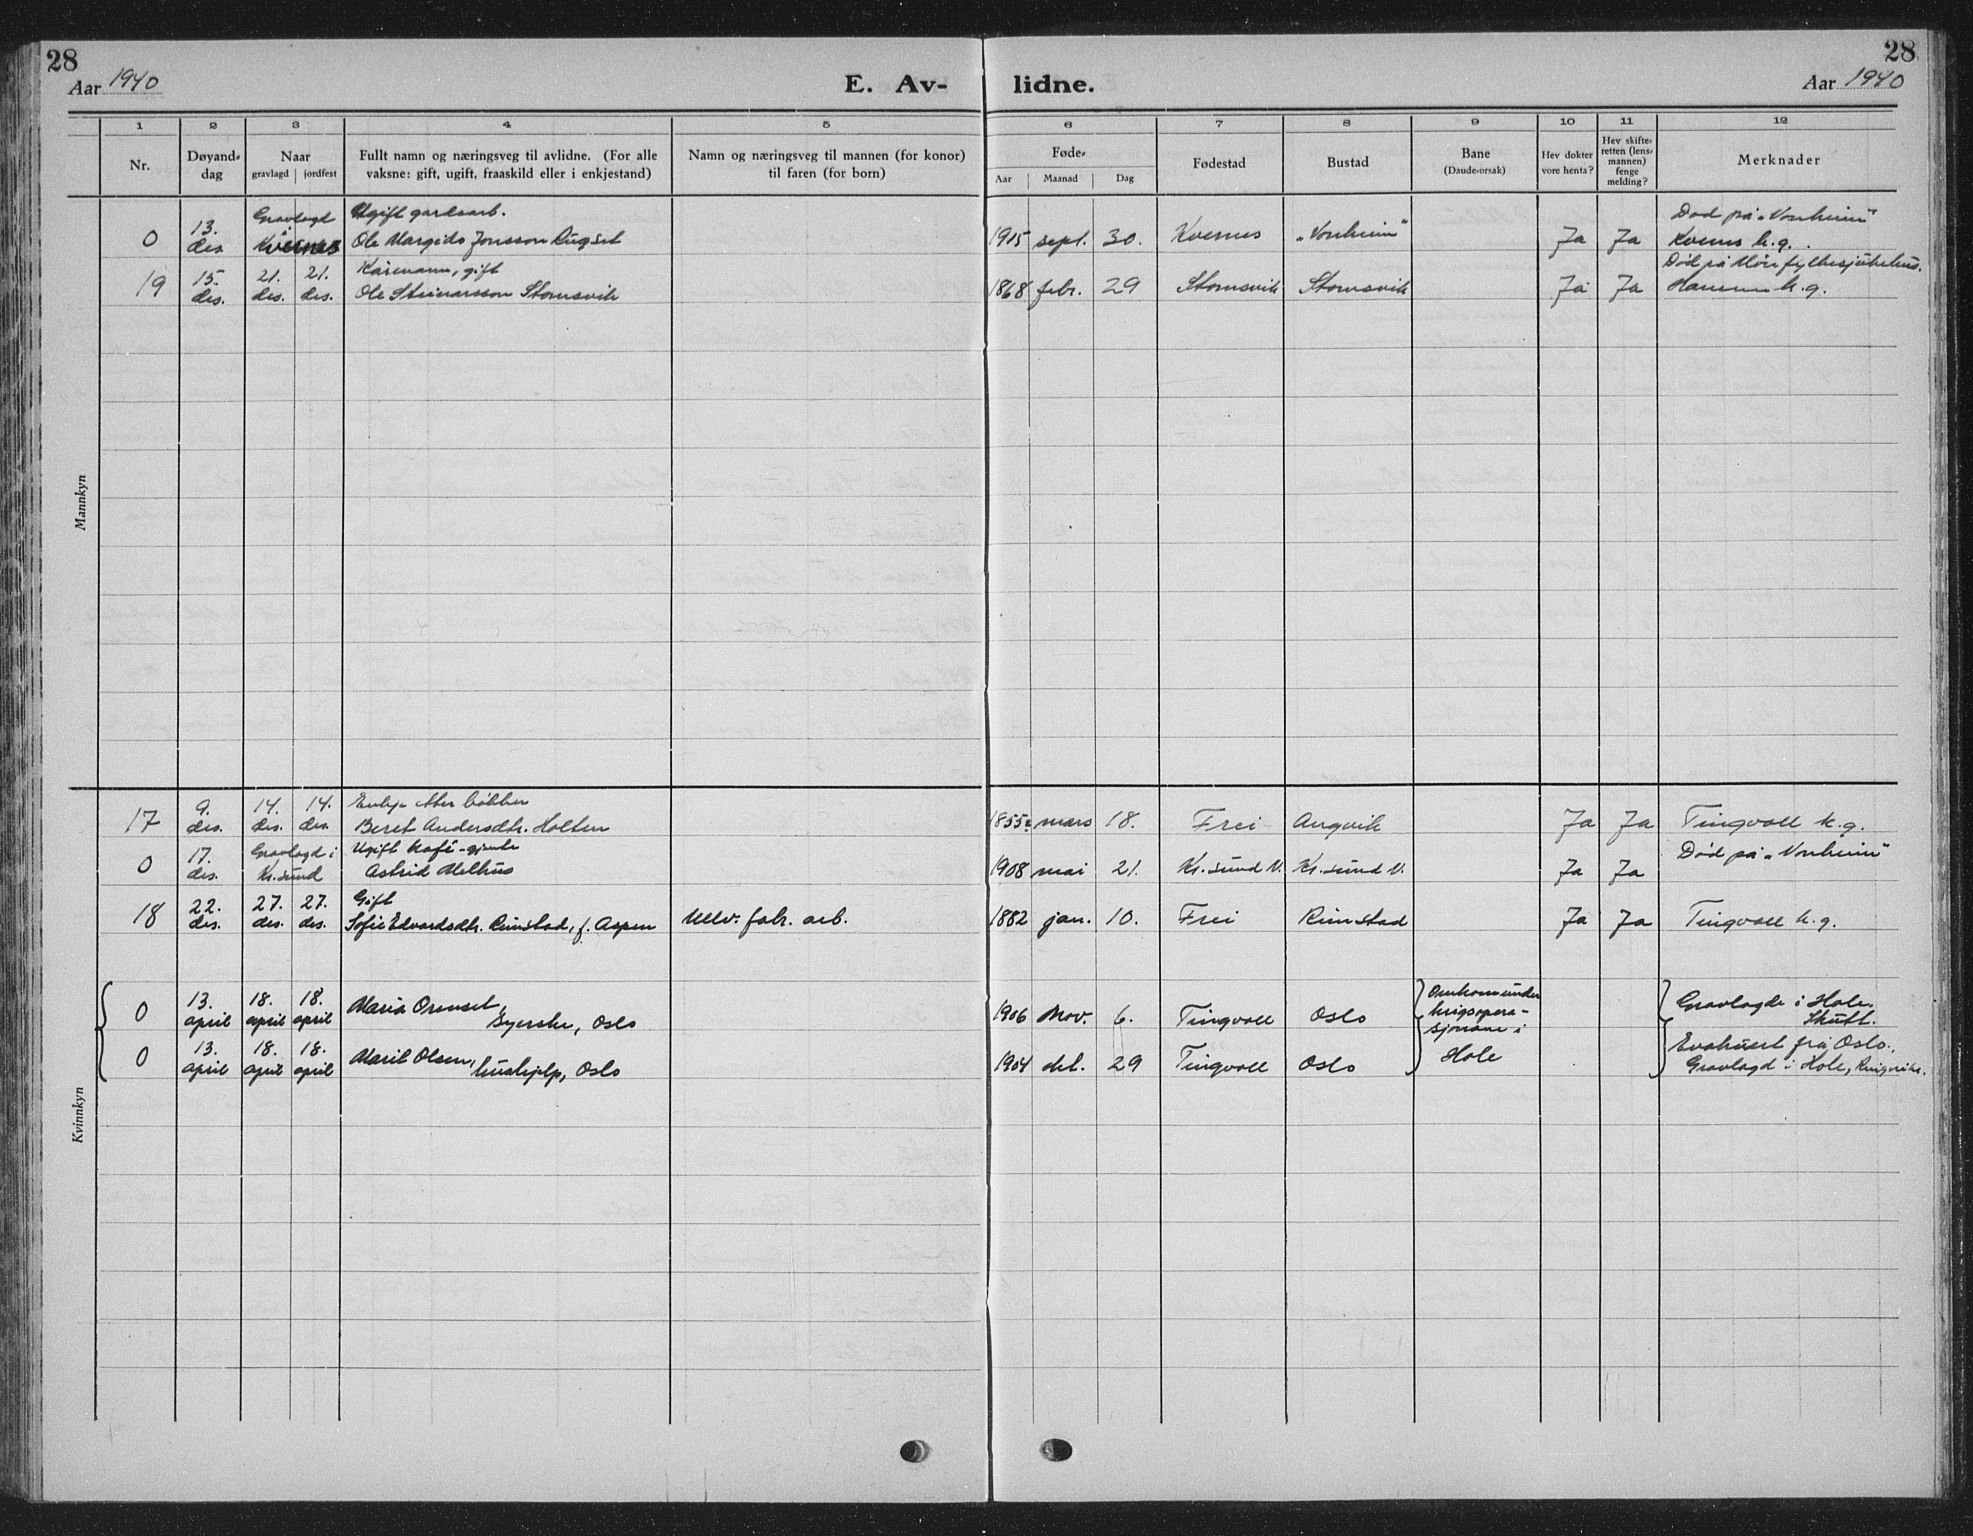 28
Aar 1940
E. Av-
lidne.
28
Aar 1940
1 2 3 4 5 6 7 8 9 10 11 12
Nr.
Døyand-
dag
Naar
gravlagd jordfest
Fullt namn og næringsveg til avlidne. (For alle
vaksne: gift, ugift, fraaskild eller i enkjestand)
Namn og næringsveg til mannen (for konor)
til faren (for born)
Føde-
Aar Maanad Dag
Fødestad
Bustad
Bane
(Daude-orsak)
Hev dokter
vore henta?
Hev skifte-
retten (lens-
mannen)
fenge
melding?
Merknader
Mannkyn
0
13.
des
Gravlagd
i
Kvernes
Ugift gardsarb.
Ole Margido Jonsson Rugset
1915 sept. 30. Kvernes "Vonheim" Ja Ja
Død på "Vonheim"
Kvernes k.g.
19
15.
des.
21.
des.
21.
des.
Kårmann, gift
Ole Steinarsson Stomsvik
1868 febr. 29 Stomsvik Stomsvik Ja Ja
Død på Møre fylkessjukehus.
k.g.
17
9.
des.
14.
des.
14.
des.
Enkje etter bøkker
Beret Andersdtr. Holten
1855 mars 18. Frei Angvik Ja Ja Tingvoll k.g.
0
17.
des.
Gravlagd i
Kr.sund
Ugift kafé-gjente
Astrid Melhus
1908 mai 21. Kr.sund N. Kr.sund N. Ja Ja
Død på "Vonheim"
18
22.
des.
27.
des.
27.
des.
Gift
Sofie Edvardsdtr. Rimstad, f. Aspen
fabr. arb.
1882 jan. 10. Frei Rimstad Ja Ja Tingvoll k.g.
Kvinnkyn
0
13.
april
18.
april
18.
april
Maria Orenset,
Oslo
1906 Nov. 6. Tingvoll Oslo
Omkom under
krigsopera-
sjonane i
Hole
Gravlagde i Hole.
0
13.
april
18.
april
18.
april
Marit Olsen,
hushjelp, Oslo
1904 okt. 29 Tingvoll Oslo
Evakuert frå Oslo.
Gravlagd i Hole, Ringerike.